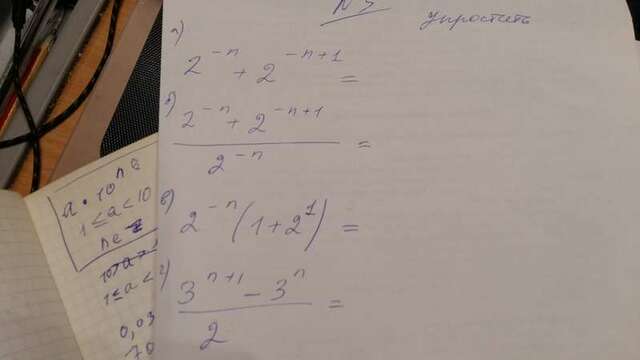 N 3 Упростить
1) 2^{-n} + 2^{-n+1} =
2) \frac{2^{-n} + 2^{-n+1}}{2^{-n}} =
3) 2^{-n} (1+2^1) =
4) \frac{3^{n+1} - 3^n}{2} =
a · 10^n
1 ≤ a < 10
1 ≤ a <
0,03